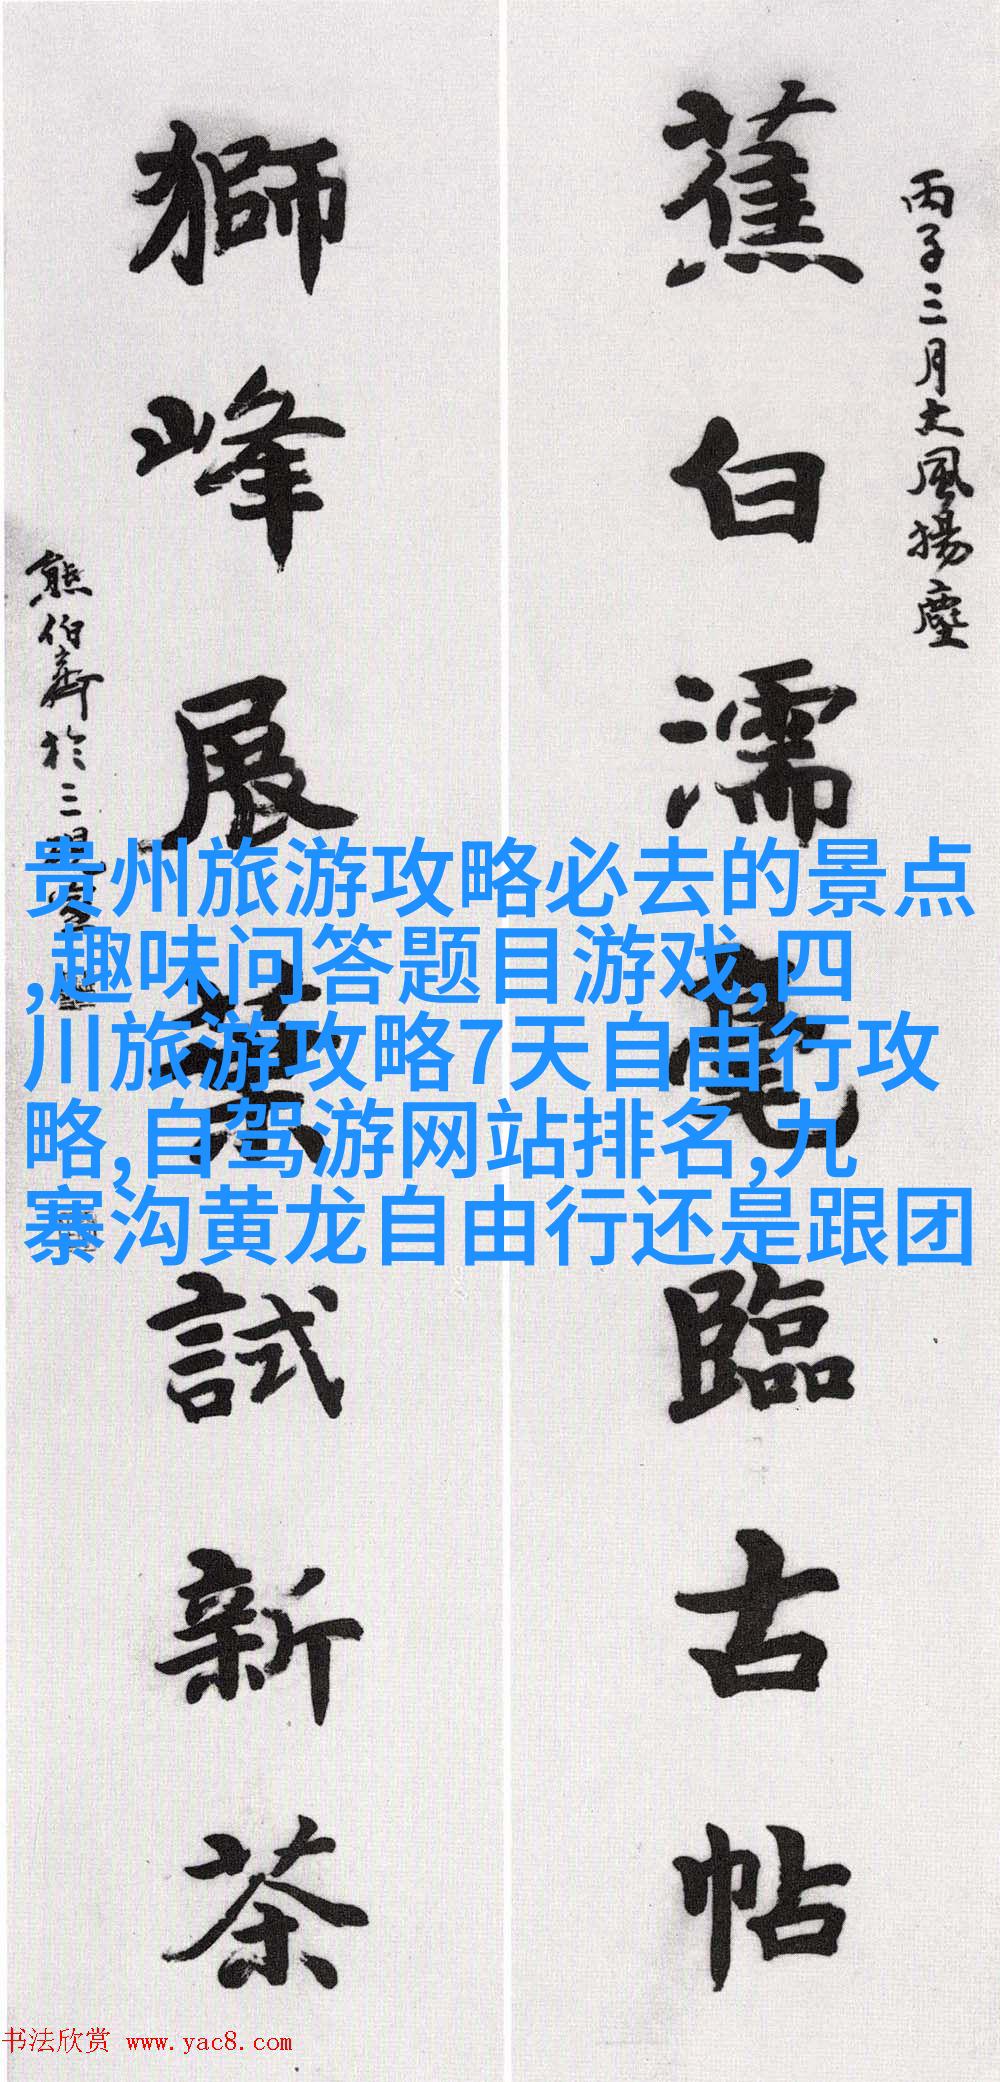 丙子三月大風揚塵
蕉白濡毫臨古帖
獅峰展葉試新茶
熊伯齊於三
贵州旅游攻略必去的景点
,趣味问答题目游戏,四
川旅游攻略7天自由行攻
略,自驾游网站排名,九
寨沟黄龙自由行还是跟团
书法欣赏 www.yac8.com